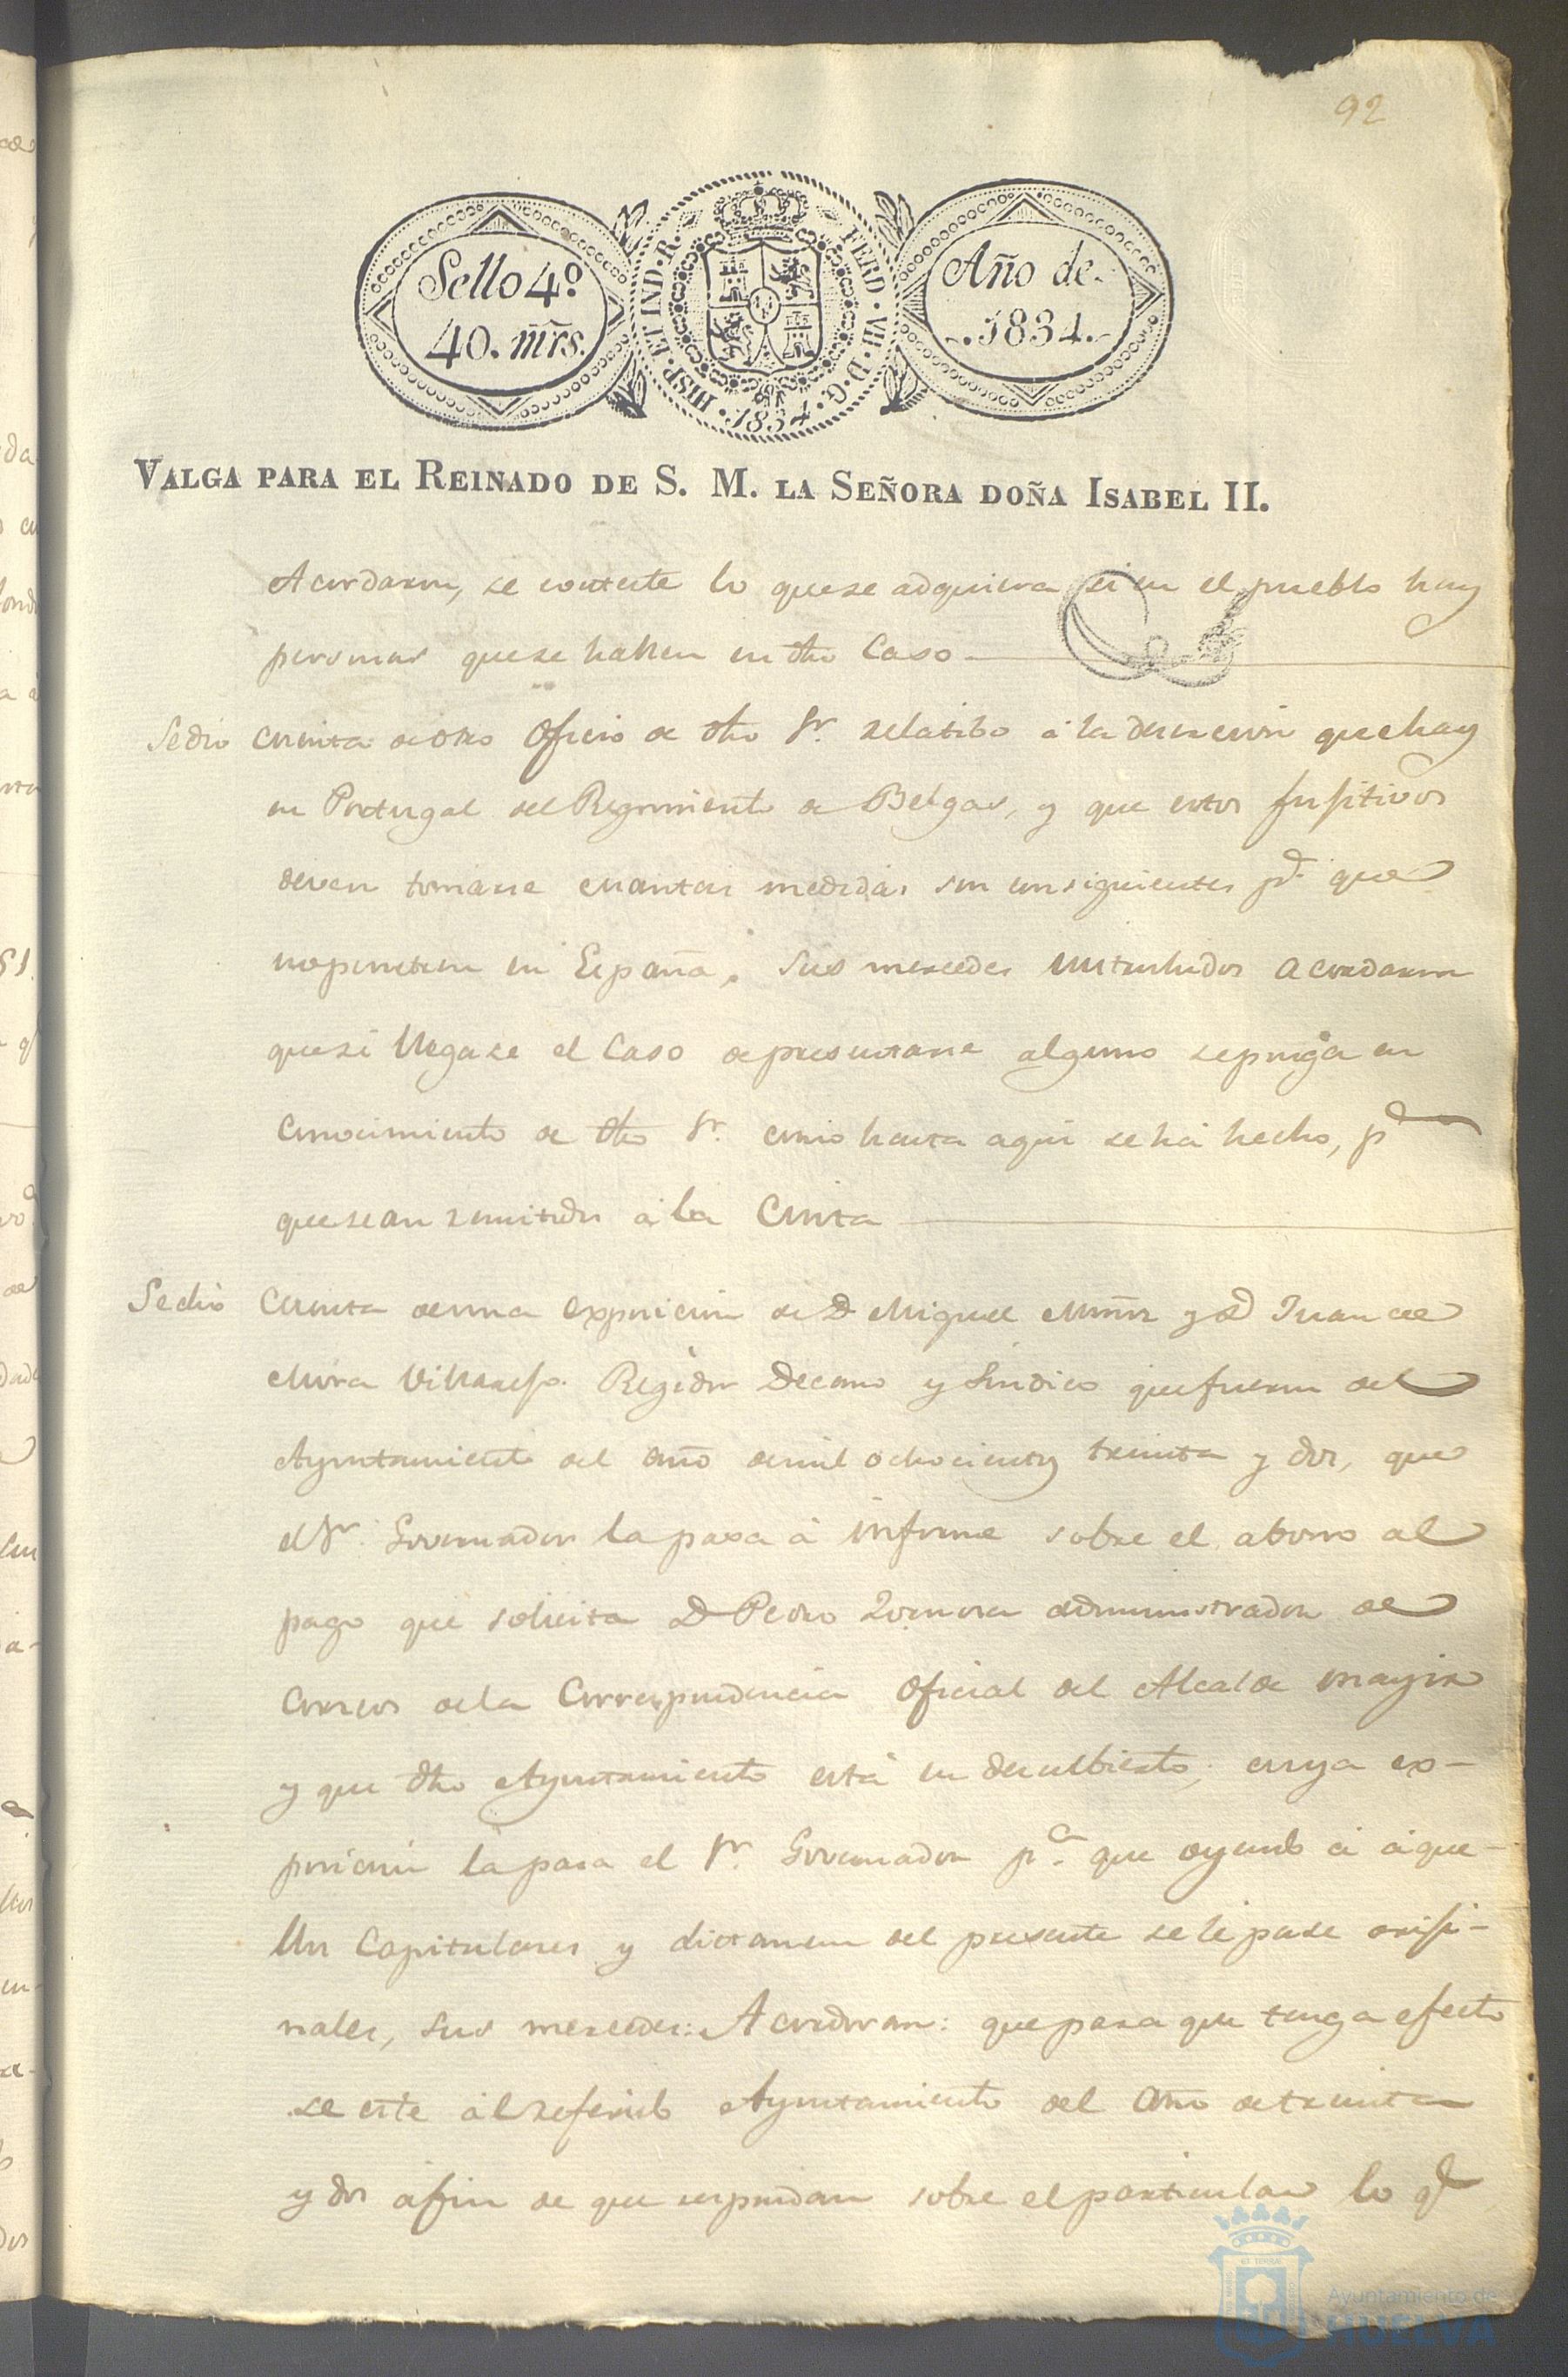 92
Sello 4º
40. mrs.
HISP. ET IND. R.
FERD. VII. D. G.
1834
Año de
1834.
VALGA PARA EL REINADO DE S. M. LA SEÑORA DOÑA ISABEL II.
Acordaron, se conteste lo que se adquiera si en el pueblo hay
personas que se hallen en dho Caso
Se dio cuenta de otro Oficio de dho Sr. relatibo á la desercion que hay
en Portugal del Regimiento de Belgas, y que estos fusitivos
deven tomarse cuantas medidas son consiguientes pª que
no penetren en España; sus mercedes enterados acordaron
que si llegase el Caso de presentarse alguno se ponga en
Conocimiento de dho Sr. como hasta aqui se há hecho, pª
que sean remitidos á la
Se dio Cuenta de una Exposicion de Dn Miguel Muñoz y Dn Juan de
Mora Regidor Decano y Sindico que fueron del
Ayuntamiento del año de mil ochocientos treinta y dos, que
el Sr. Governador la pasa á informe sobre el abono al
pago que solicita Dn Pedro administrador de
Correos de la Correspondencia Oficial del Alcalde mayor
y que dho Ayuntamiento está en descubierto; cuya ex-
posicion la pasa el Sr. Governador pª que oyendo á aque-
llos Capitulares y dictamen del presente se le pase orisi-
nales, sus mercedes: Acordaron: que para que tenga efecto
se cite al referido Ayuntamiento del año de treinta
y dos á fin de que respondan sobre el particular lo q
Ayuntamiento de
HUELVA